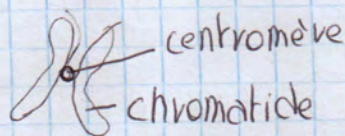 centromère
chromatide